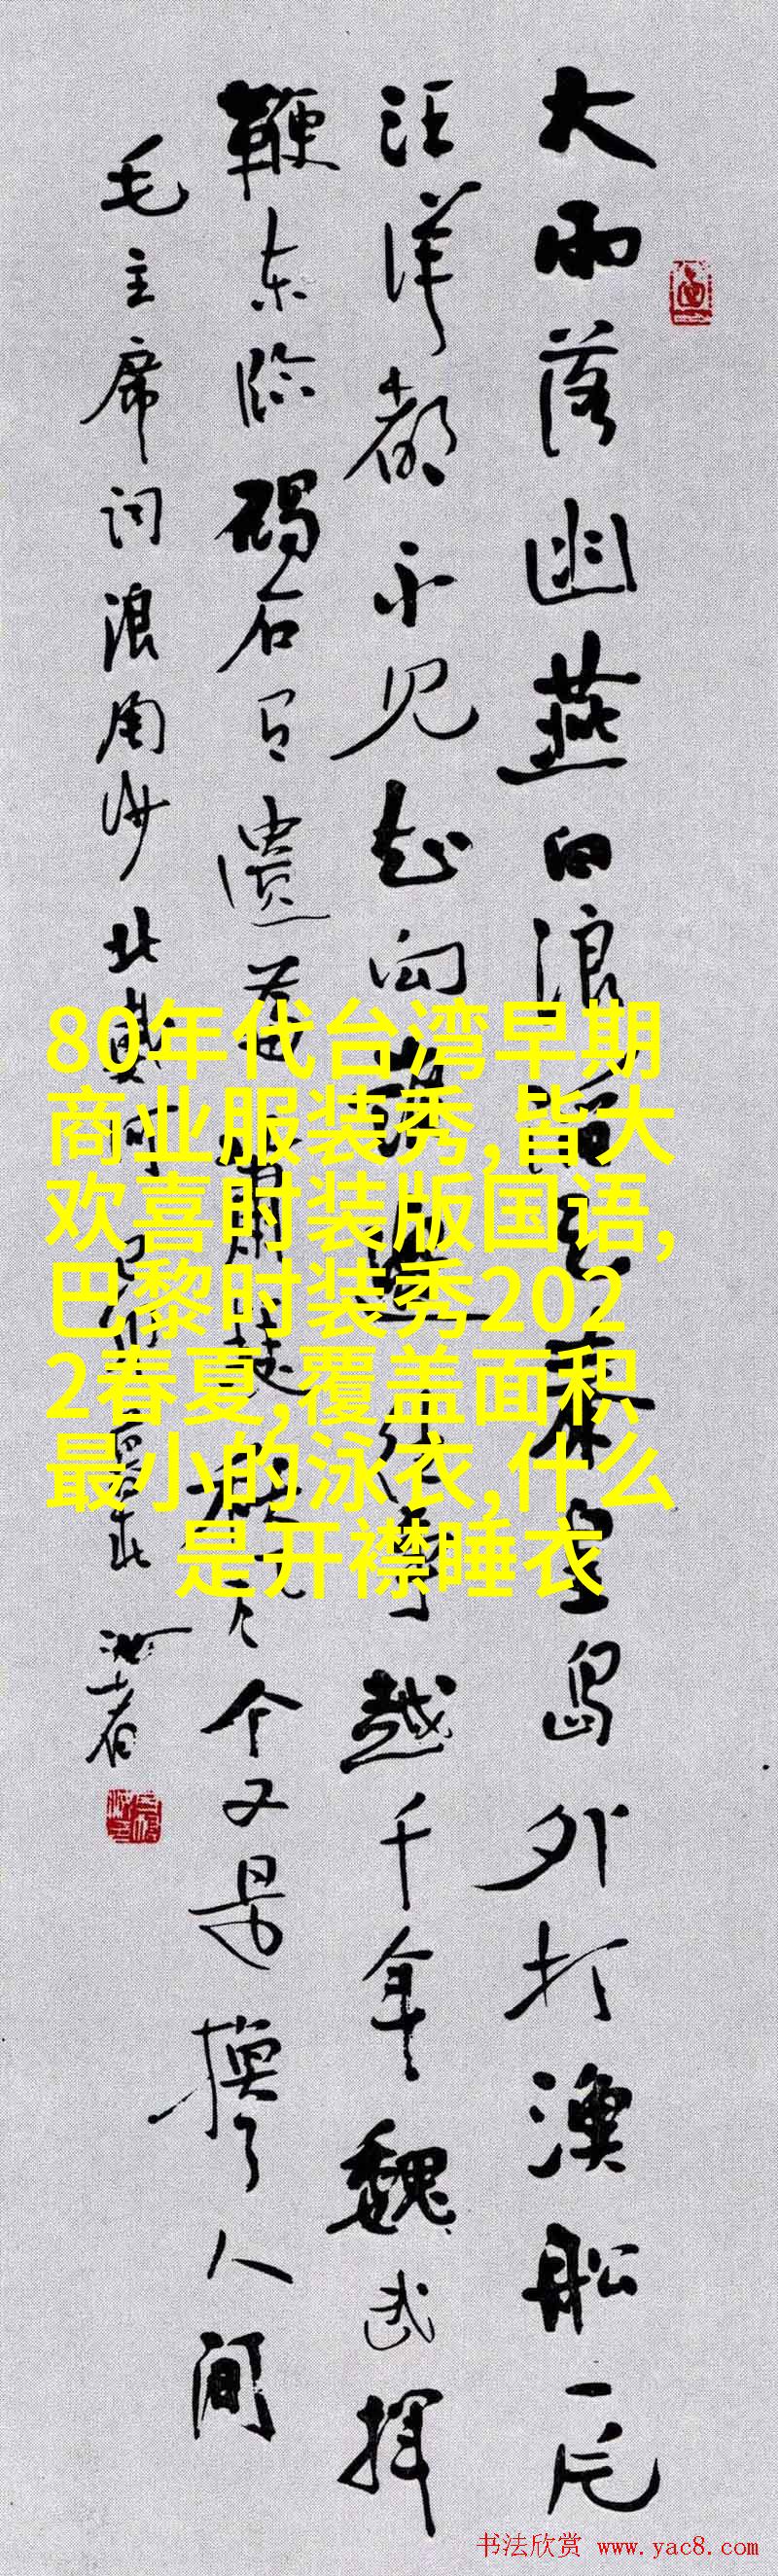 大雨落幽燕白浪滔天秦皇島外打漁船一片
汪洋都不见知向誰邊往事越千年魏武揮
鞭东临碣石有遺篇蕭瑟秋风今又是換了人间
毛主席词浪淘沙北戴河
80年代台湾早期
商业服装秀,皆大
欢喜时装版国语,
巴黎时装秀202
2春夏,覆盖面积
最小的泳衣,什么
是开襟睡衣
书法欣赏 www.yac8.com